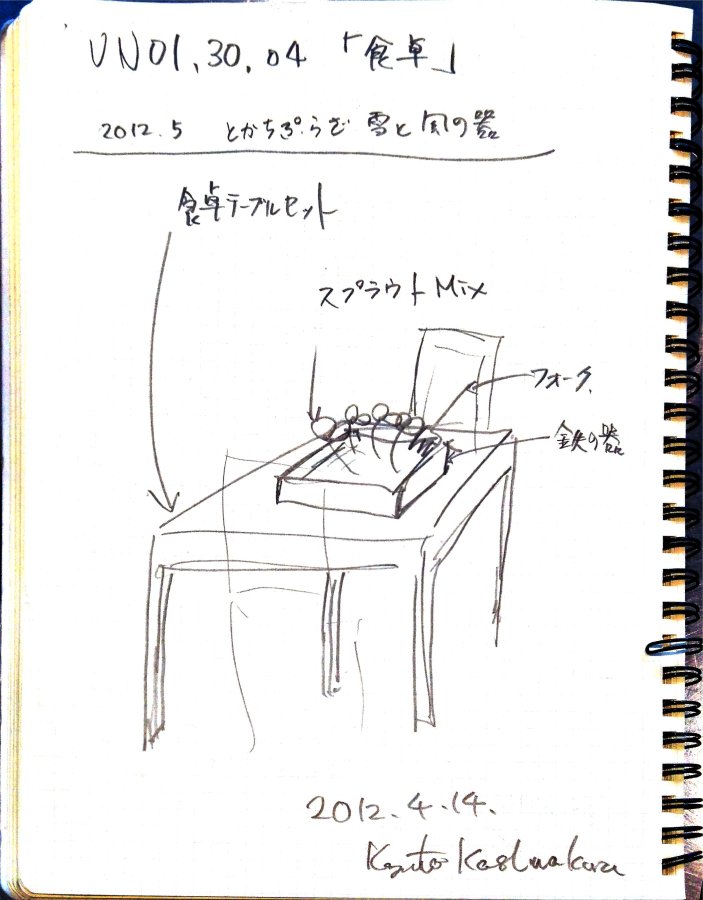 VN01.30.04 「食卓」
2012.5 とかちぷらざ 雪と風の器
食卓テーブルセット
スプラウトMix
フォーク
鉄の器
2012.4.14.